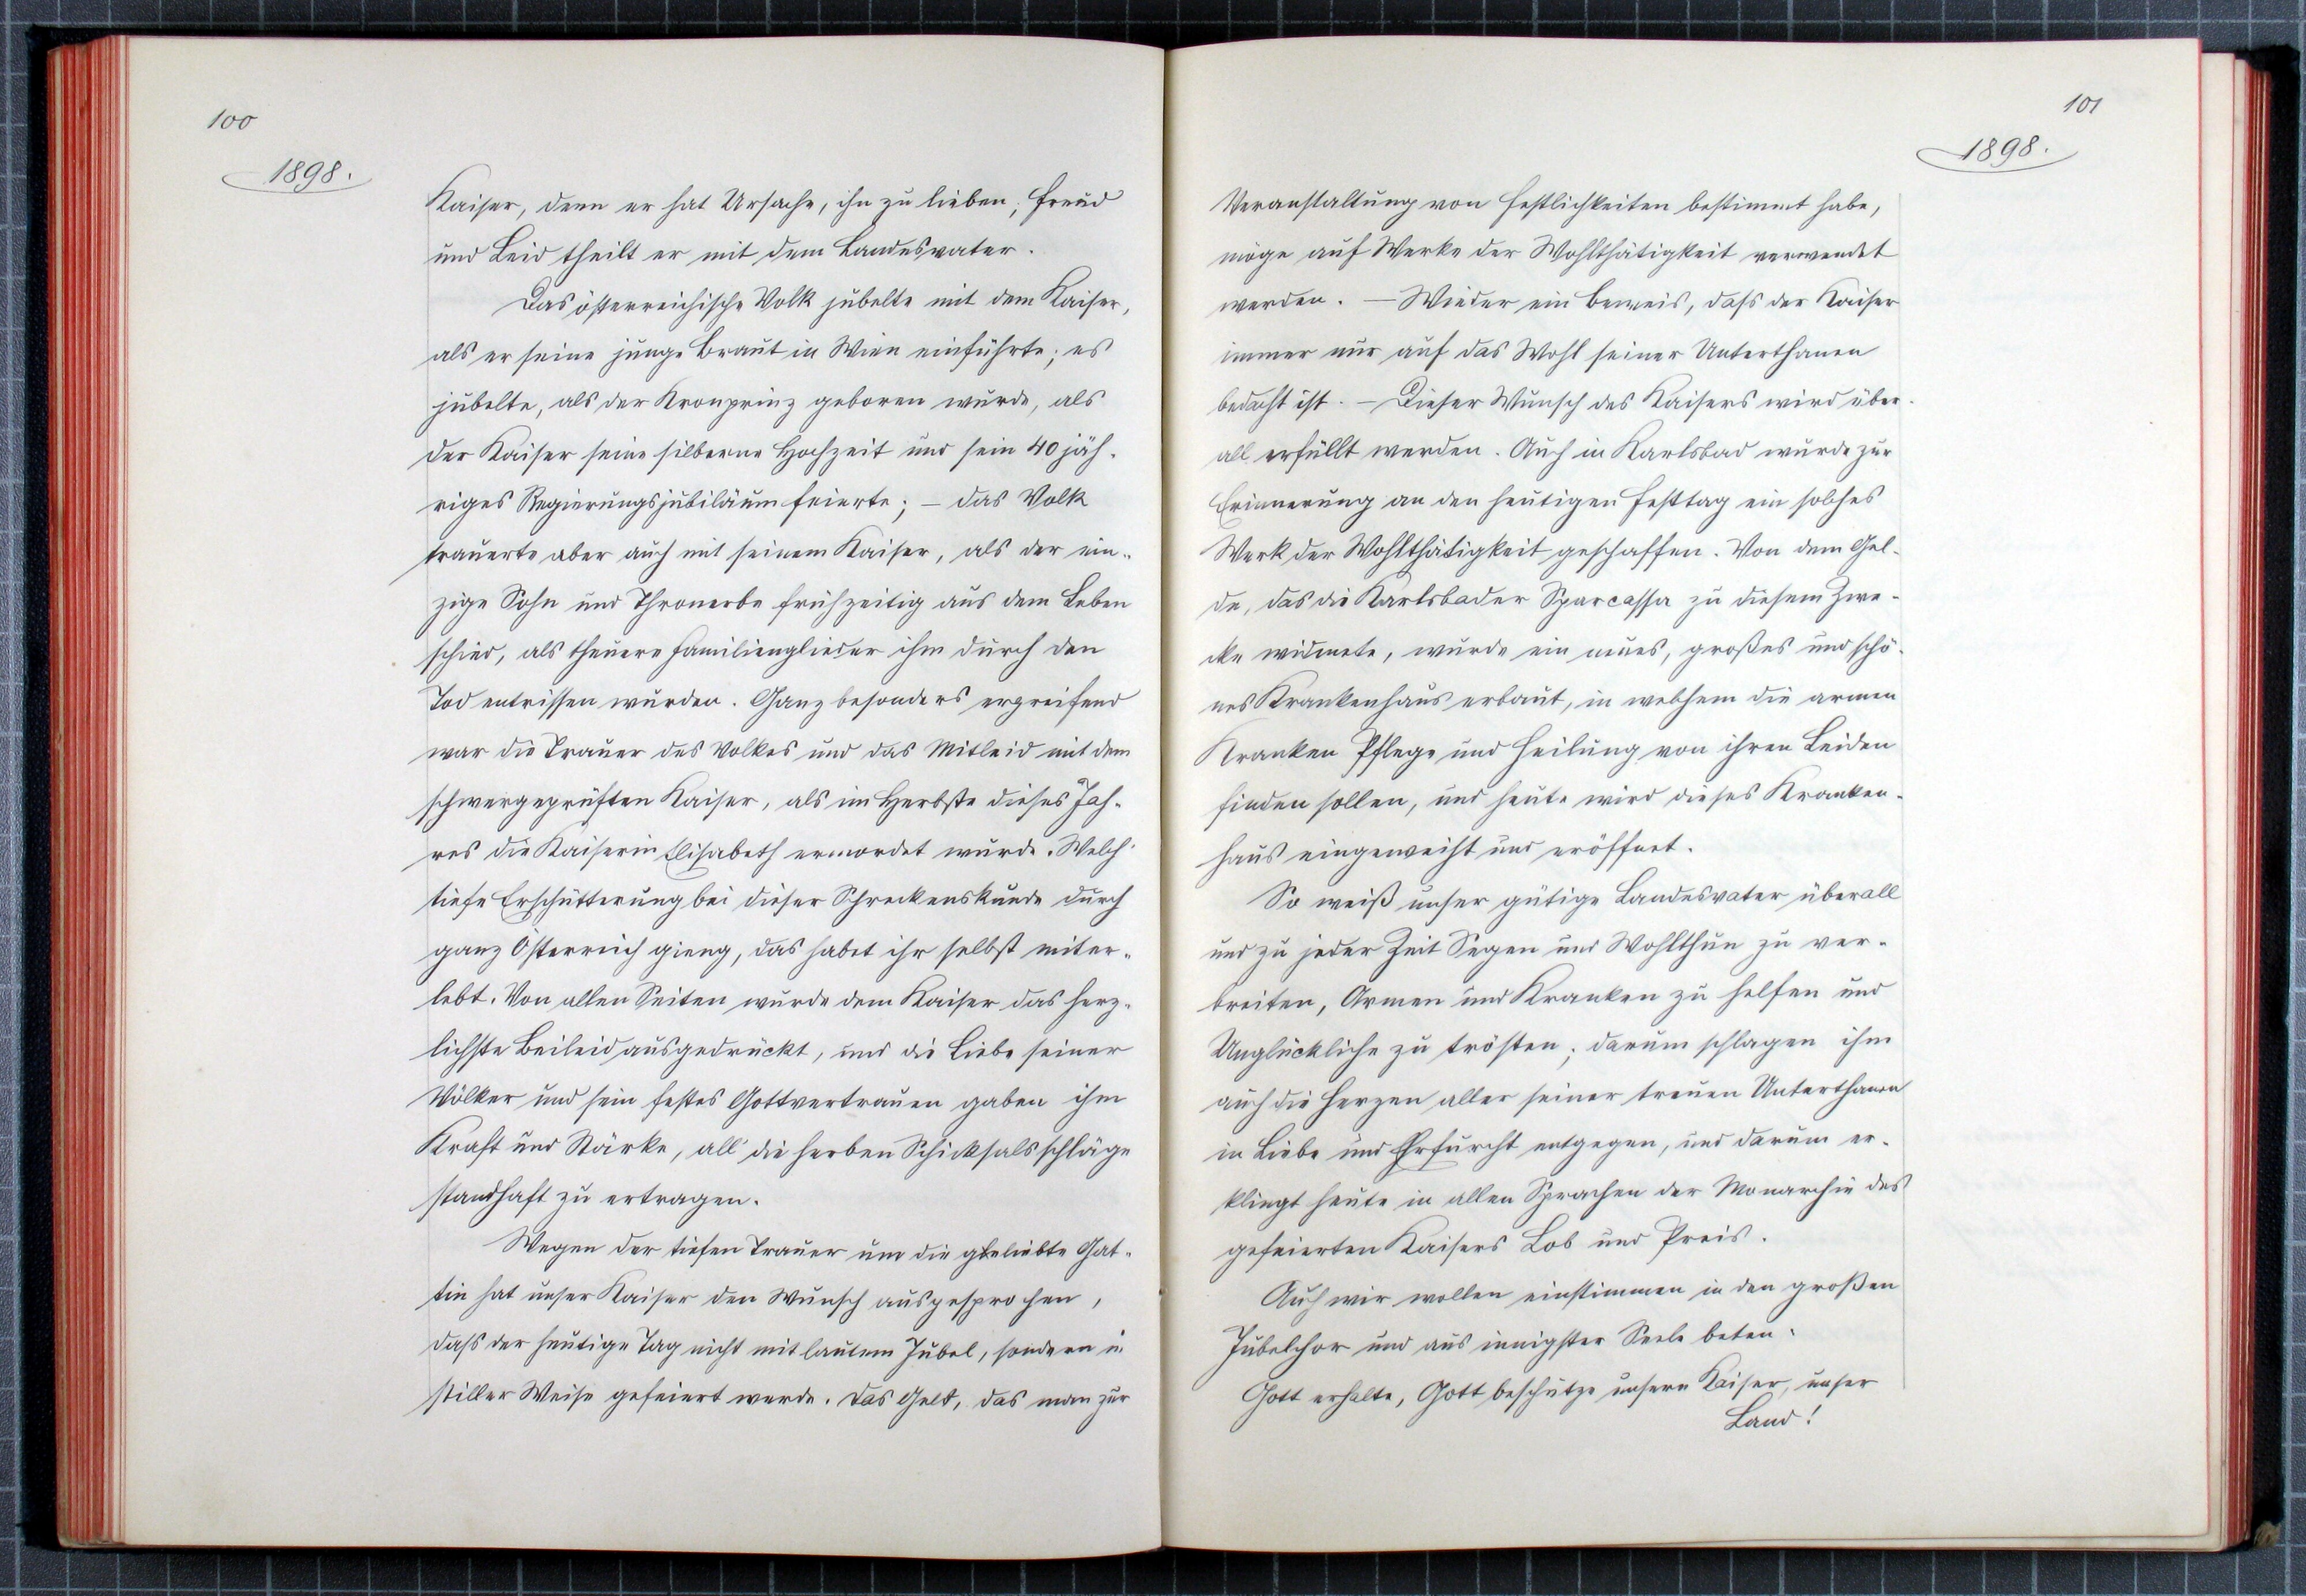 100
1898.
Kaiser, denn er hat Ursache, ihn zu lieben; Freud
und Leid theilt er mit dem Landesvater.
Das österreichische Volk jubelte mit dem Kaiser,
als er seine junge Braut in Wien einführte; es
jubelte, als der Kronprinz geboren wurde, als
der Kaiser seine silberne Hochzeit und sein 40 jäh-
riges Regierungsjubiläum feierte; – das Volk
trauerte aber auch mit seinem Kaiser, als der ein-
zige Sohn und Thronerbe frühzeitig aus dem Leben
schied, als theuere Familienglieder ihm durch den
Tod entrissen wurden. Ganz besonders ergreifend
war die Trauer des Volkes und das Mitleid mit dem
schwergeprüften Kaiser, als im Herbste dieses Jah-
res die Kaiserin Elisabeth ermordet wurde. Welch'
tiefe Erschütterung bei dieser Schreckenskunde durch
ganz Österreich gieng, das habet ihr selbst miter-
lebt. Von allen Seiten wurde dem Kaiser das herz-
lichste Beileid ausgedrückt, und die Liebe seiner
Völker und sein festes Gottvertrauen gaben ihm
Kraft und Stärke, all' die herben Schicksalsschläge
standhaft zu ertragen.
Wegen der tiefen Trauer um die geliebte Gat-
tin hat unser Kaiser den Wunsch ausgesprochen,
dass der heutige Tag nicht mit lautem Jubel, sondern in
stiller Weise gefeiert werde. Das Geld, das man zur
101
1898.
Veranstaltung von Festlichkeiten bestimmt habe,
möge auf Werke der Wohlthätigkeit verwendet
werden. – Wieder ein Beweis, dass der Kaiser
immer nur auf das Wohl seiner Unterthanen
bedacht ist. – Dieser Wunsch des Kaisers wird über-
all erfüllt werden. Auch in Karlsbad wurde zur
Erinnerung an den heutigen Festtag ein solches
Werk der Wohlthätigkeit geschaffen. Von dem Gel-
de, das die Karlsbader Sparcassa zu diesem Zwe-
cke widmete, wurde ein neues, großes und schö-
nes Krankenhaus erbaut, in welchem die armen
Kranken Pflege und Heilung von ihren Leiden
finden sollen, und heute wird dieses Kranken-
haus eingeweiht und eröffnet.
So weiß unser gütige Landesvater überall
und zu jeder Zeit Segen und Wohlthun zu ver-
breiten, Armen und Kranken zu helfen und
Unglückliche zu trösten; darum schlagen ihm
auch die Herzen aller seiner treuen Unterthanen
in Liebe und Ehrfurcht entgegen, und darum er-
klingt heute in allen Sprachen der Monarchie des
gefeierten Kaisers Lob und Preis.
Auch wir wollen einstimmen in den großen
Jubelchor und aus innigster Seele beten:
Gott erhalte, Gott beschütze unsern Kaiser, unser
Land!